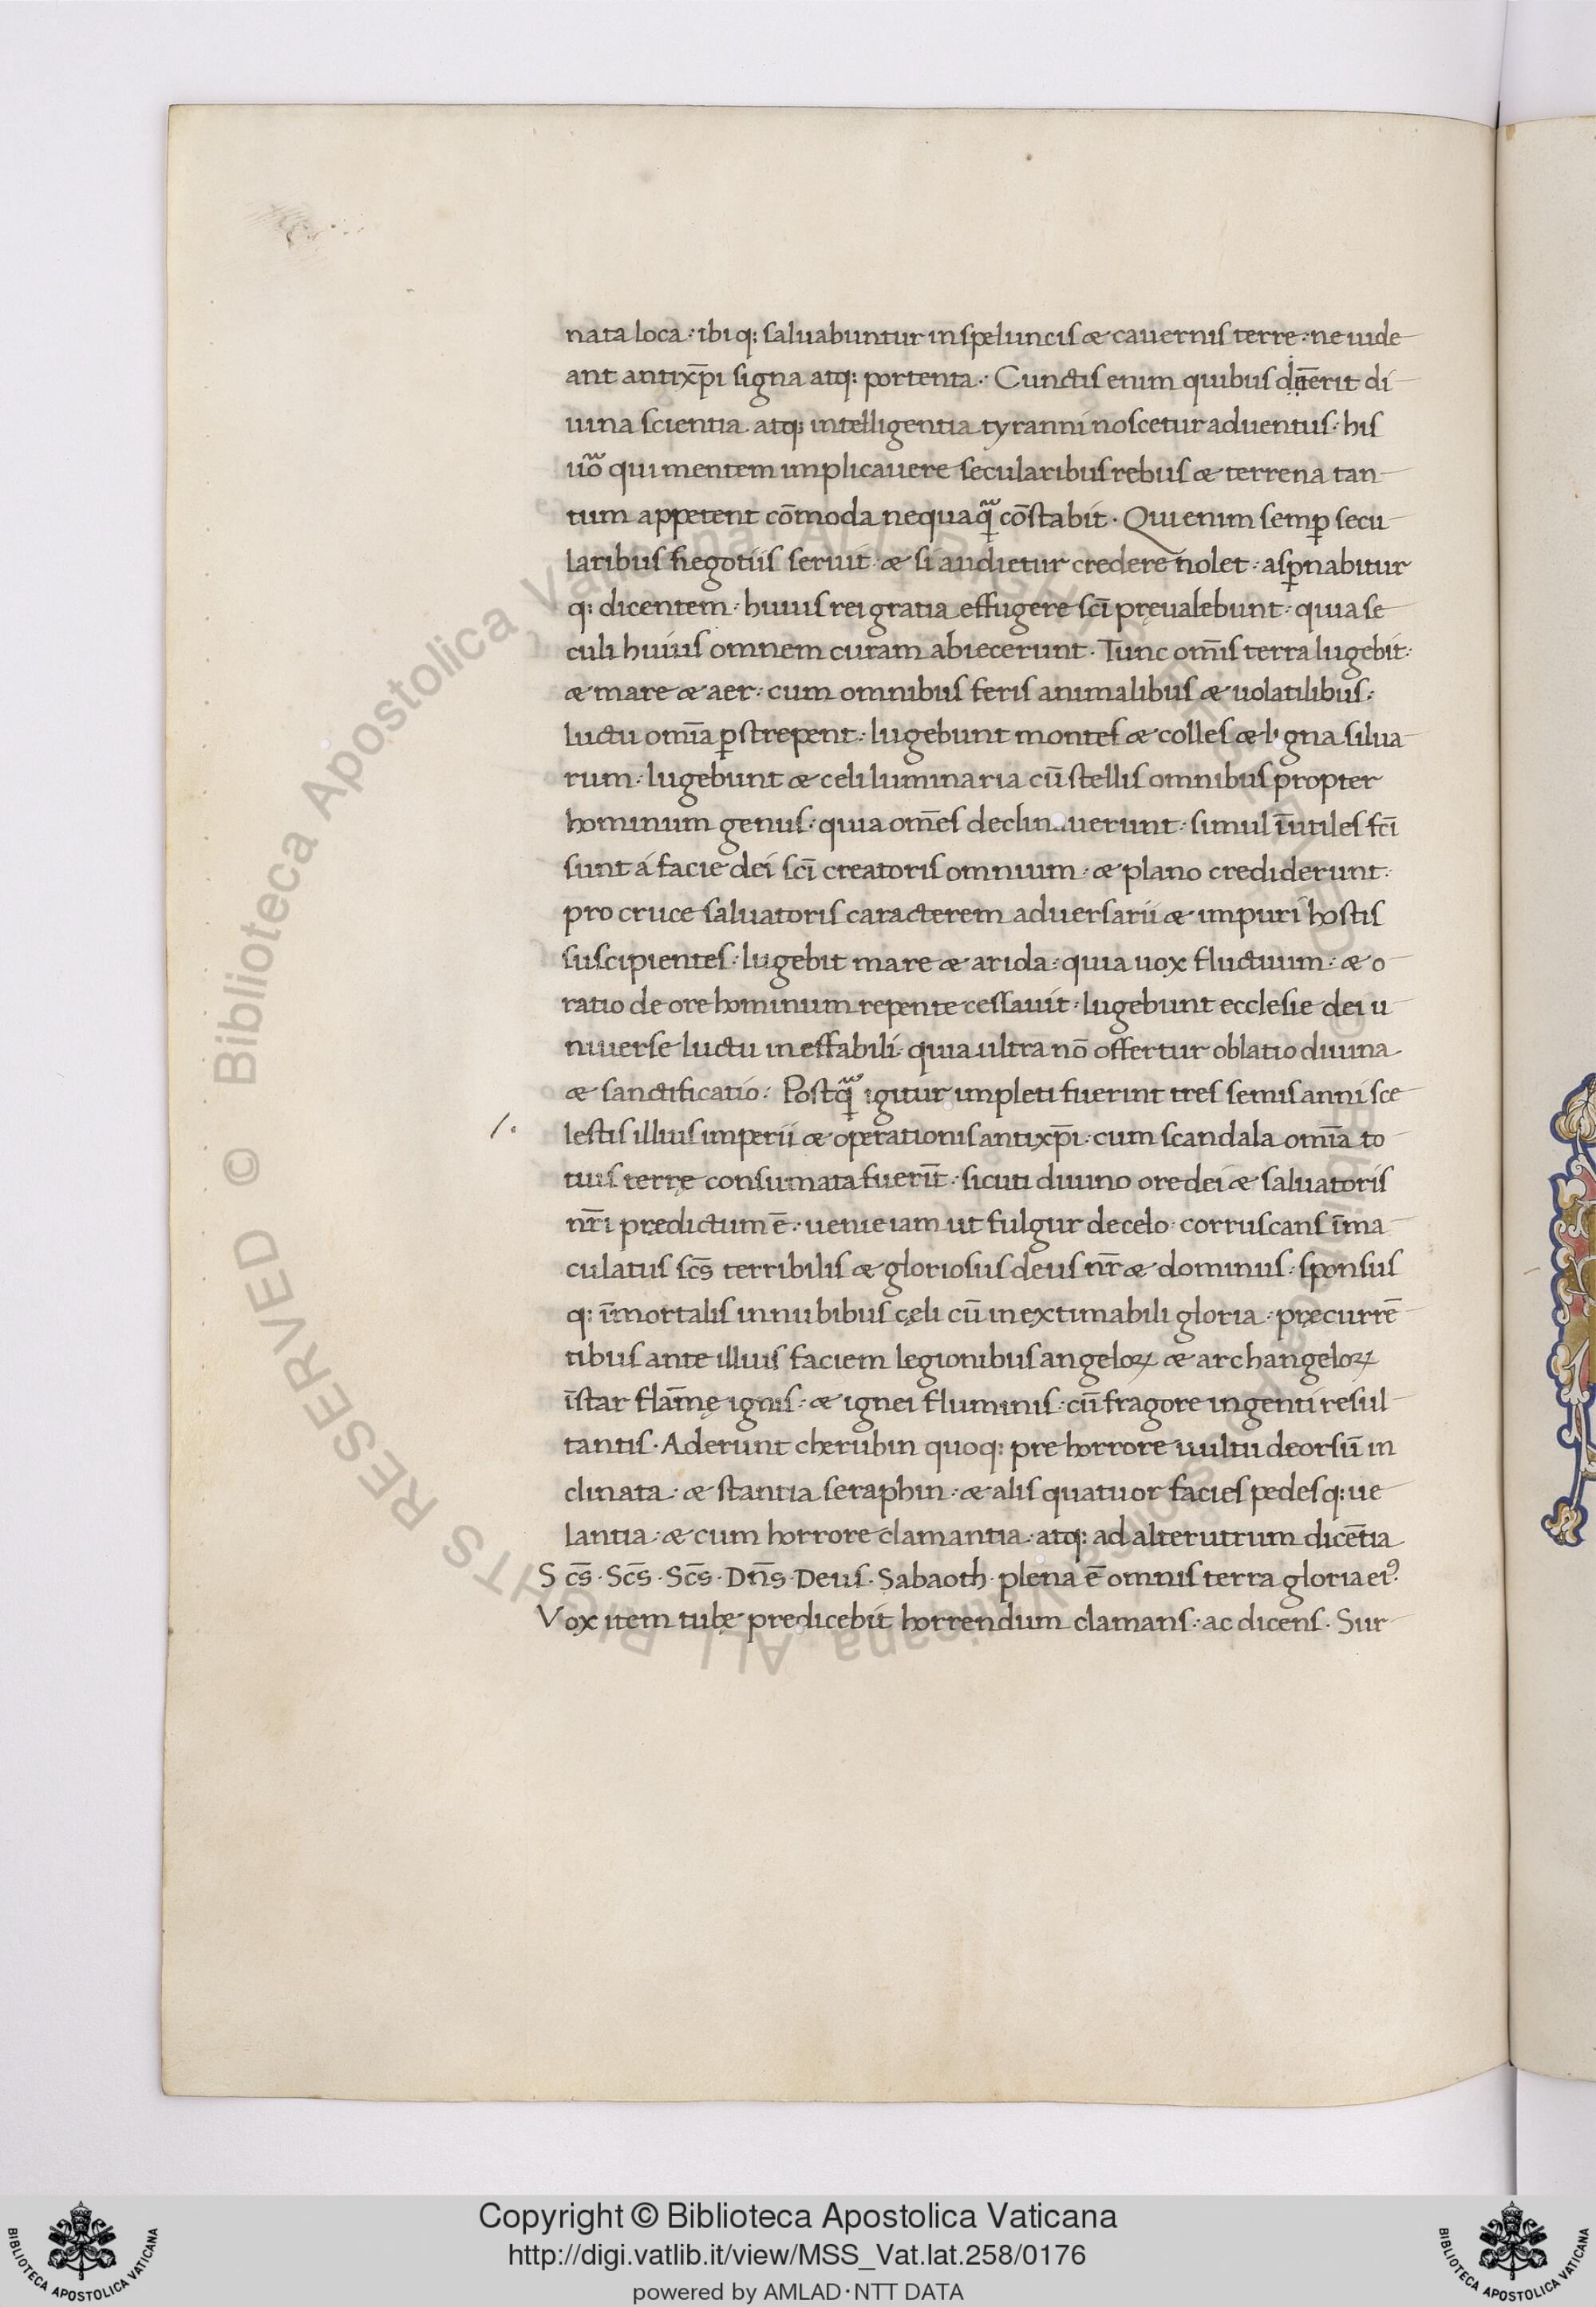 nata loca: ibiq: saluabuntur in speluncis æ cauernis terre: ne uide
ant antixp̄i signa atq: portenta. Cunctis enim quibus erit di
uina scientia atq: intelligentia tyranni noscetur aduentus. his
uoᷓ qui mentem implicauere secularibus rebus æ terrena tan
tum appetent cōmoda nequaqᷓ cōstabit. Qui enim semꝑ secu
laribus negotiis seruit: æ si audietur credere nolet: asꝑnabitur
q: dicentem: huius rei gratia effugere sc̄i pręualebunt: quia se
culi huius omnem curam abiecerunt. Tunc om̄is terra lugebit:
æ mare æ aer: cum omnibus feris animalibus æ uolatilibus:
luctu om̄ia ꝑstrepent: lugebunt montes æ colles æ ligna silua
rum: lugebunt æ celi luminaria cū stellis omnibus propter
hominum genus: quia om̄es declinauerunt: simul īutiles fc̄i
sunt á facie dei sc̄i creatoris omnium: æ plano crediderunt:
pro cruce saluatoris caracterem aduersarii æ impuri hostis
suscipientes: lugebit mare æ arida: quia uox fluctuum: æ o
ratio de ore hominum repente cessauit: lugebunt ecclesie dei u
niuerse luctu ineffabili: quia ultra nō offertur oblatio diuina
æ sanctificatio: Postqᷓ igitur impleti fuerint tres semis anni sce
/. lestis illius imperii æ operationis antixp̄i: cum scandala om̄ia to
tius terrę consumata fuerīt: sicuti diuino ore dei æ saluatoris
nr̄i predictum ē: ueniet iam ut fulgur de celo corruscans īma
culatus sc̄s terribilis æ gloriosus deus nr̄ æ dominus: sponsus
q: īmortalis in nubibus cęli cū inextimabili gloria: pręcurrē
tibus ante illius faciem legionibus angeloꝝ æ archangeloꝝ
īstar flāmę ignis: æ ignei fluminis: cū fragore ingenti resul
tantis. Aderunt cherubin quoq: pre horrore uultu deorsū in
clinata: æ stantia seraphin: æ alis quatuor facies pedesq: ue
lantia: æ cum horrore clamantia: atq: ad alterutrum dicētia
Sc̄s. Sc̄s. Sc̄s. Dn̄s. Deus. Sabaoth. plena ē omnis terra gloria eiꝰ.
Vox item tubę predicebit horrendum clamans: ac dicens. Sur
© Biblioteca Apostolica Vaticana ALL RIGHTS RESERVED
Copyright © Biblioteca Apostolica Vaticana
http://digi.vatlib.it/view/MSS_Vat.lat.258/0176
powered by AMLAD·NTT DATA
BIBLIOTECA APOSTOLICA VATICANA
BIBLIOTECA APOSTOLICA VATICANA